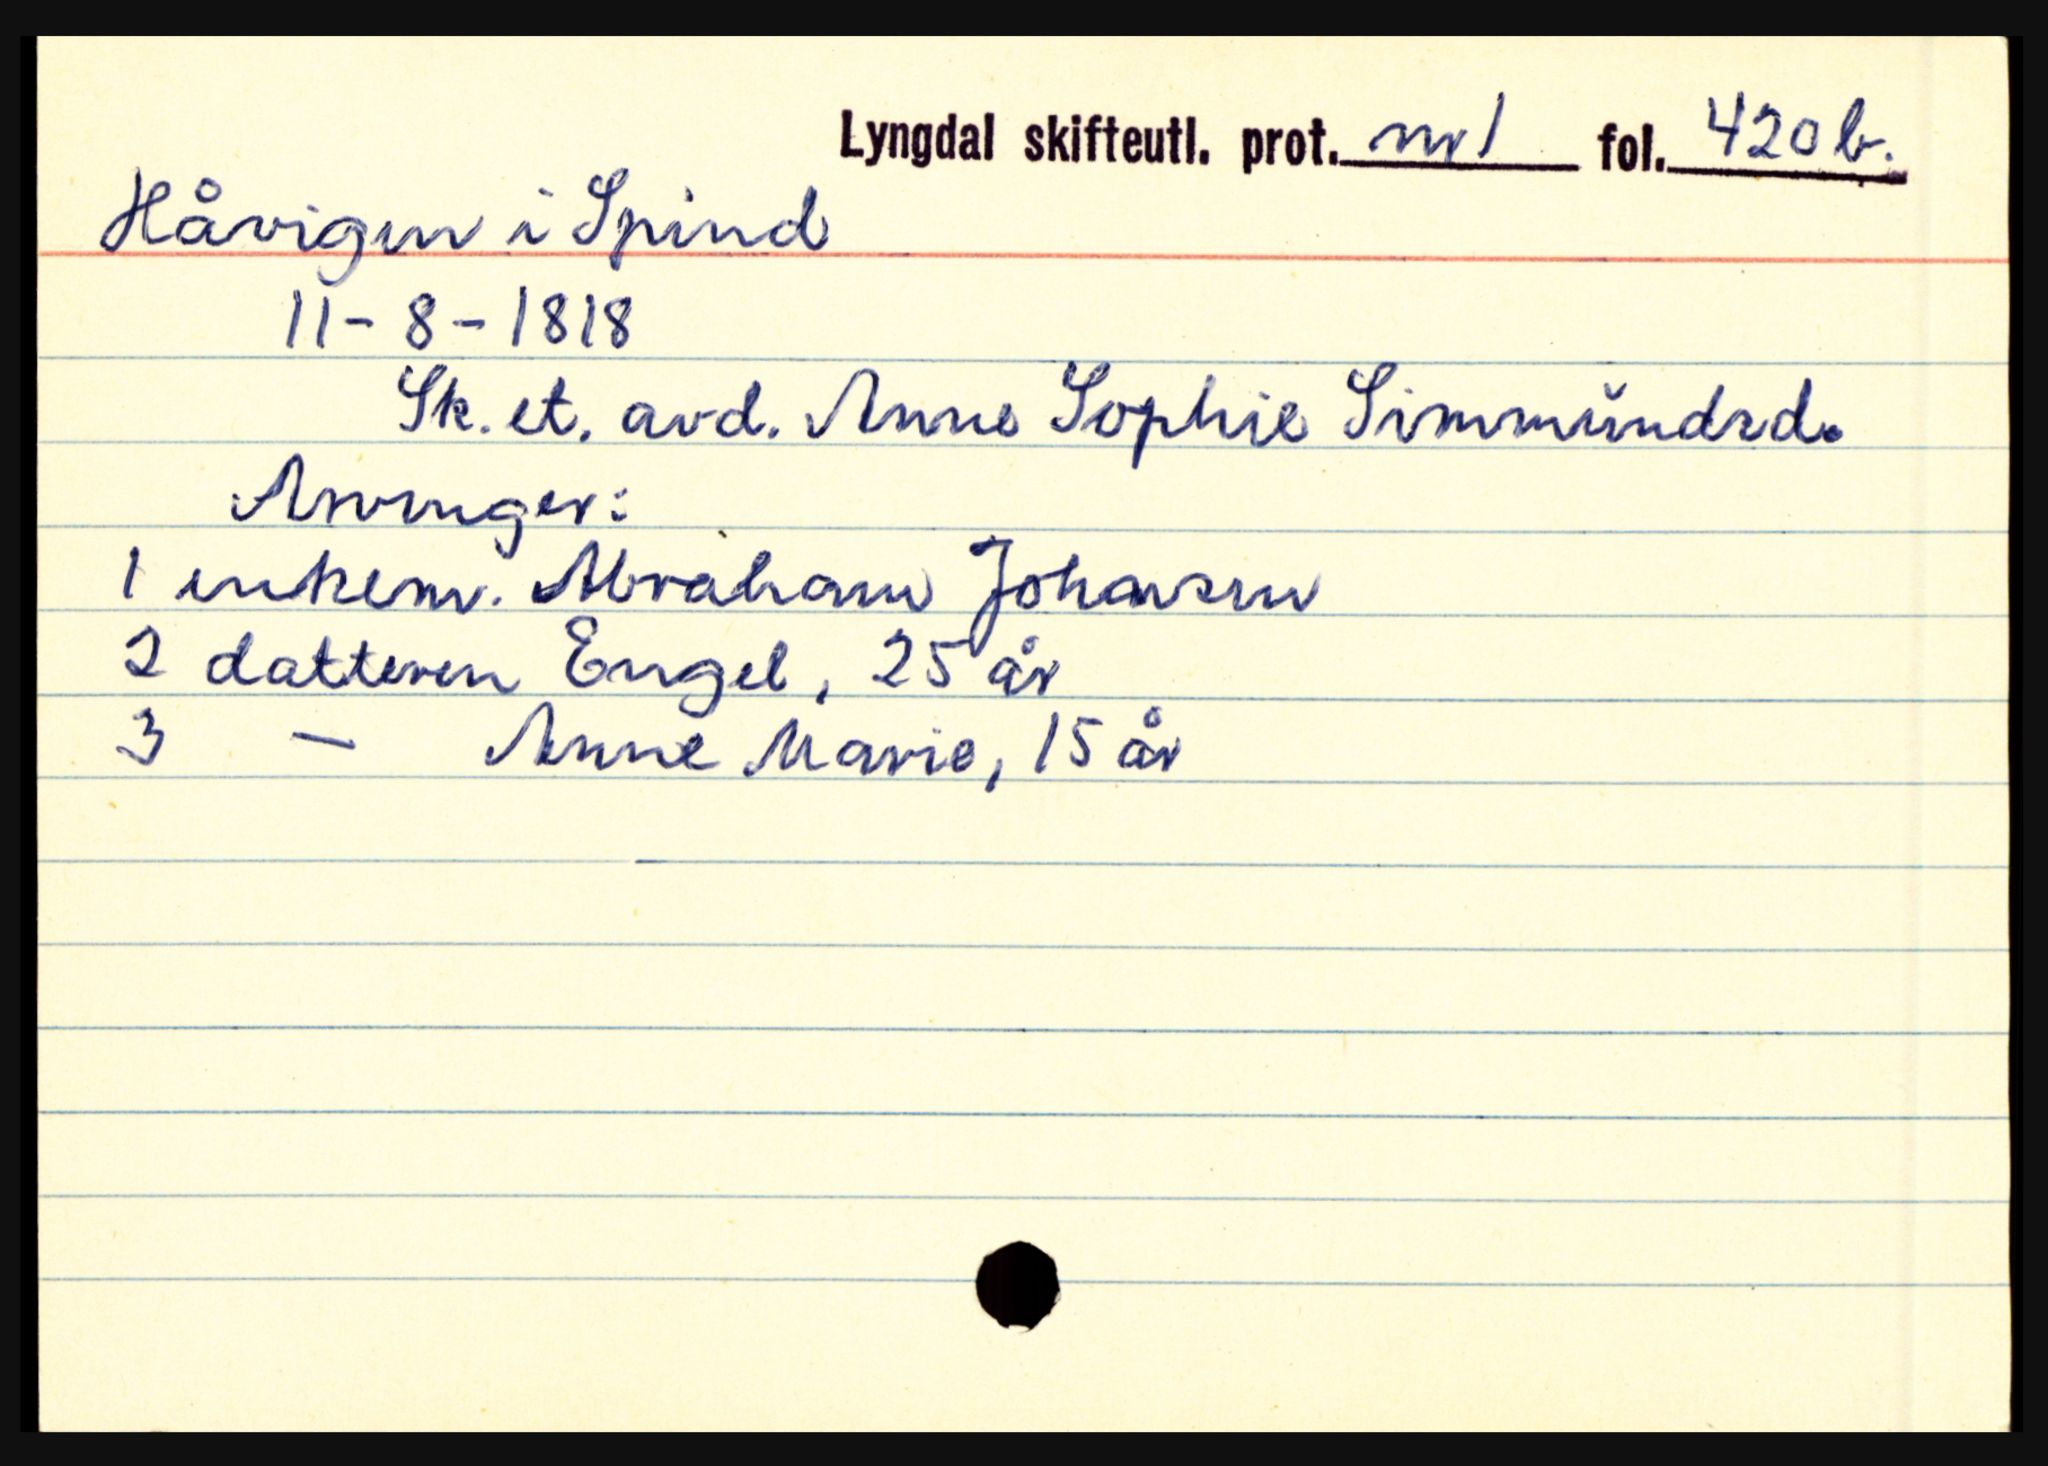 Lyngdal skifteutl. prot. nr 1 fol. 420b.
Håvigen i Spind
11-8-1818
Sk. et. avd. Anne Sophie Simmŭndsd.
Arvinger:
1 enkem. Abraham Johansen
2 datteren Engel, 25 år
3 — Anne Marie, 15 år